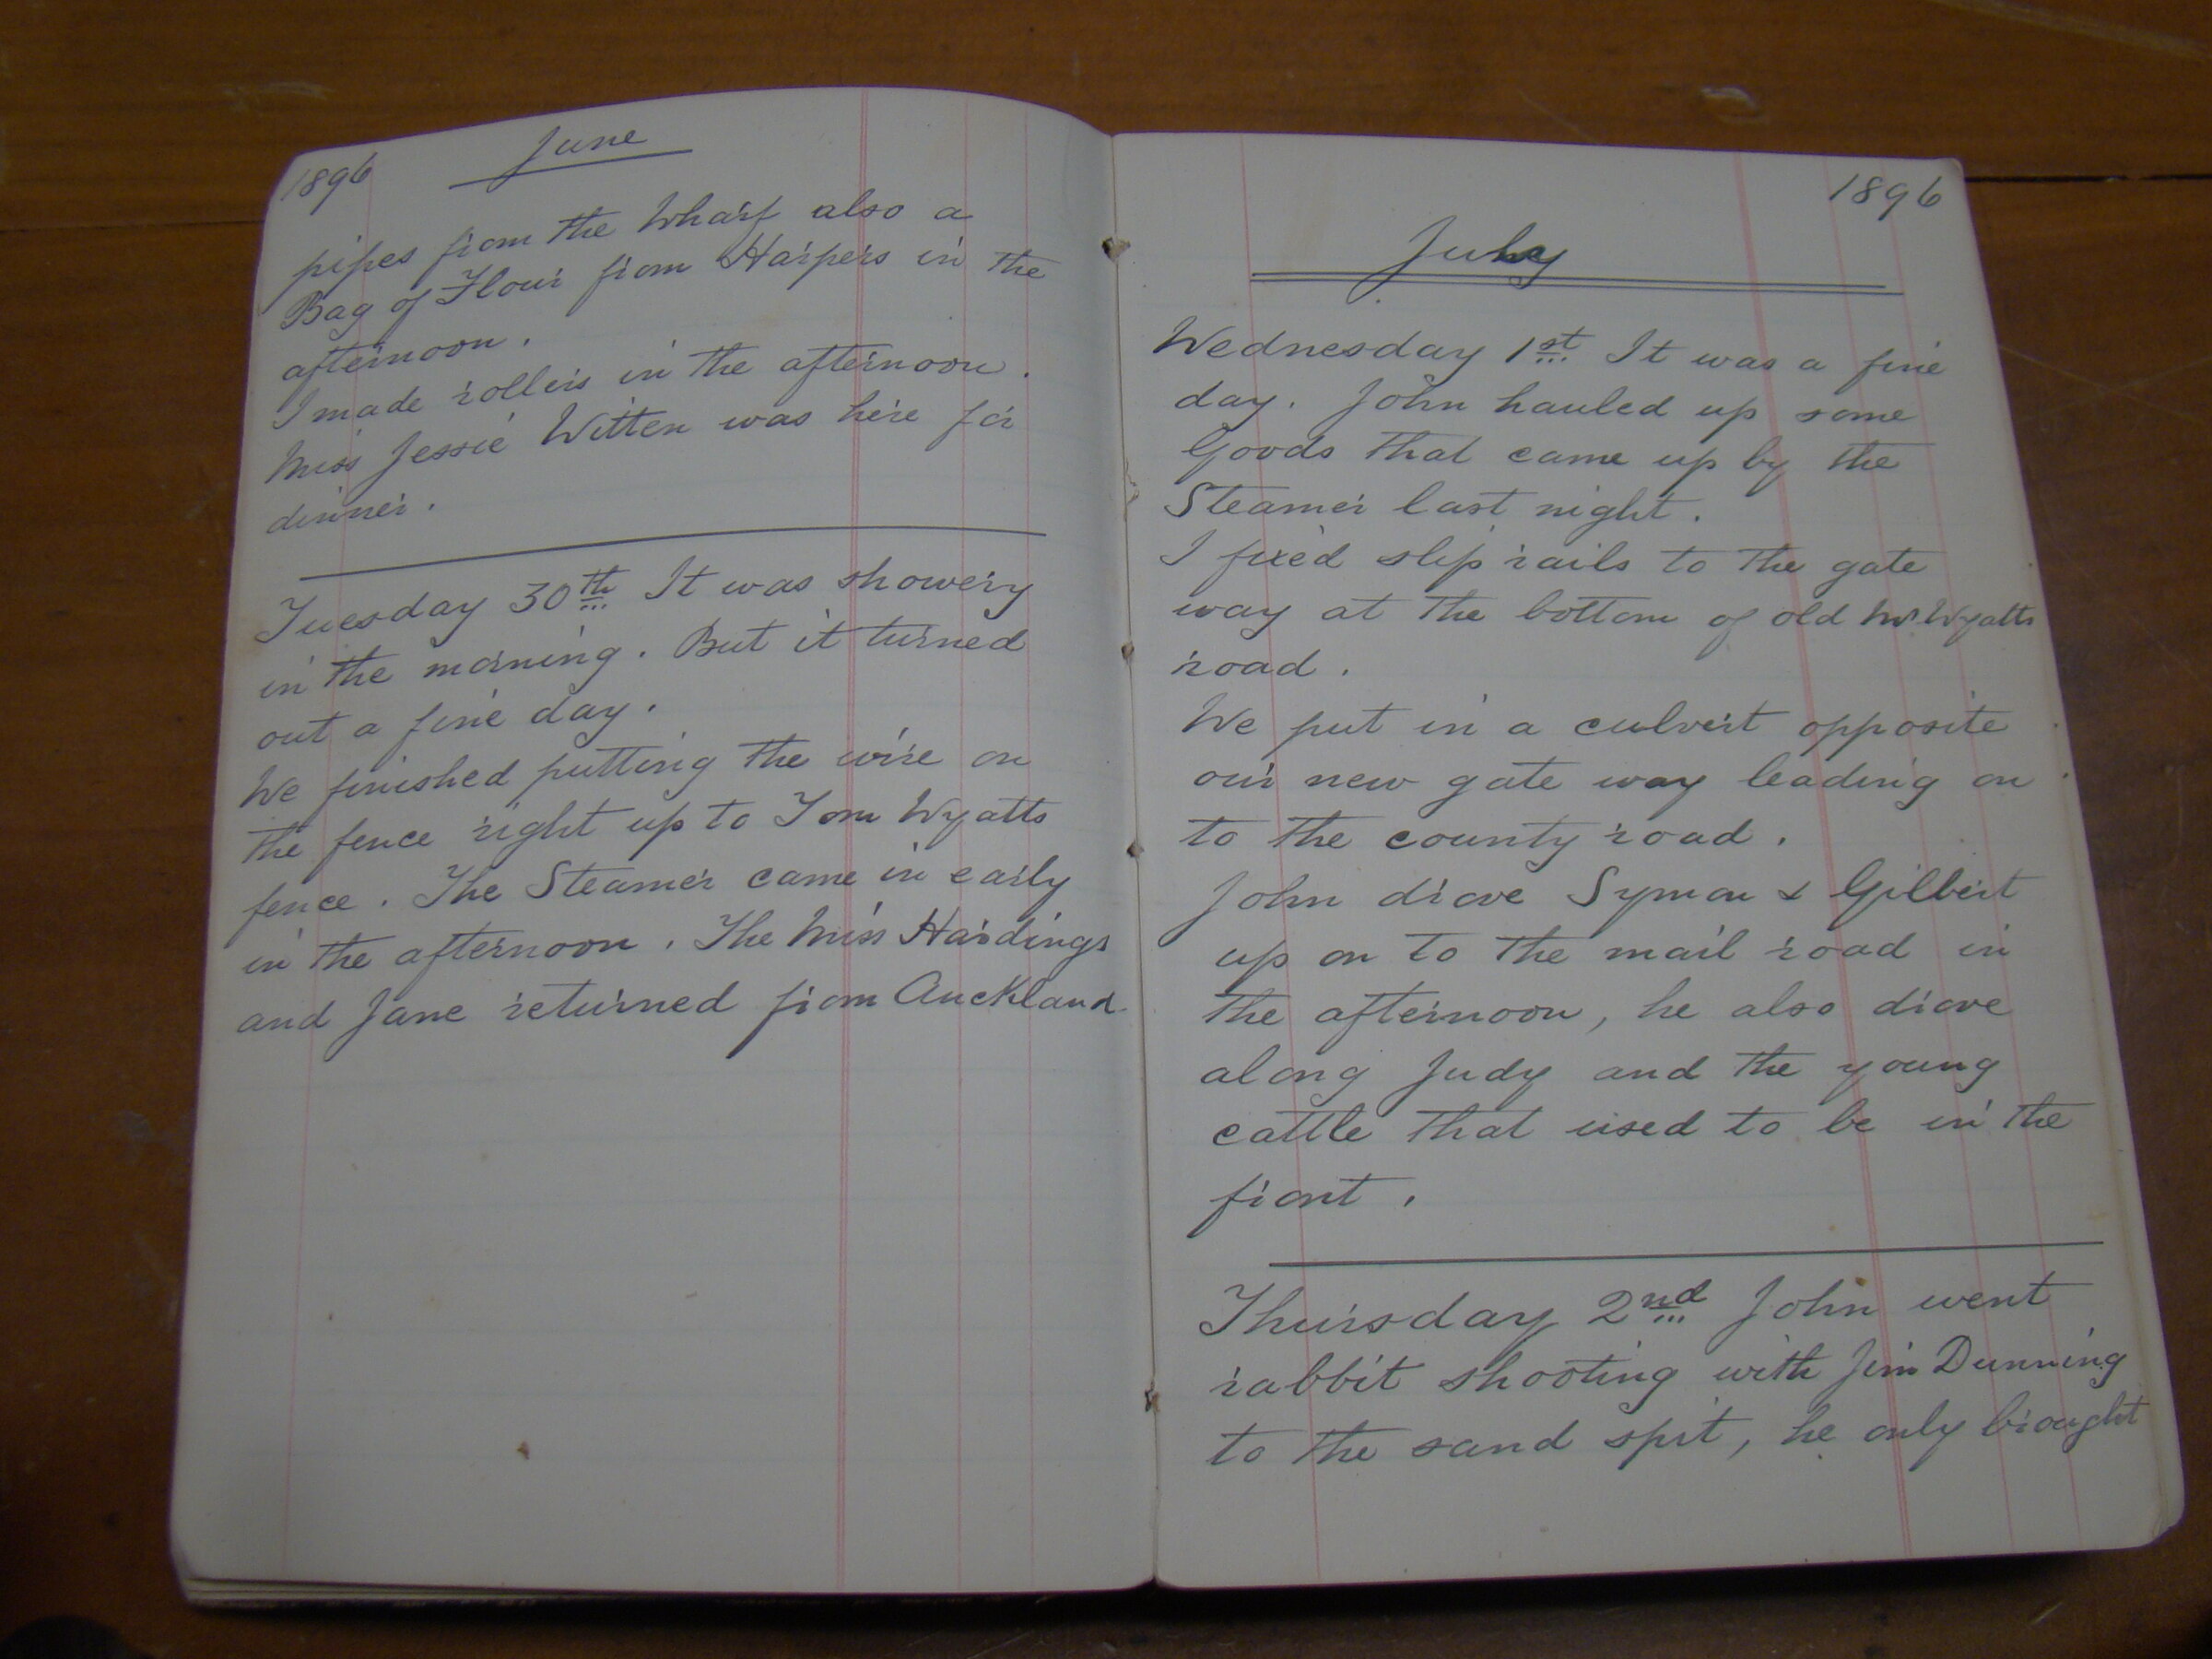 1896
June
pipes from the Wharf also a
Bag of Flour from Harpers in the
afternoon.
I made rollers in the afternoon.
Miss Jessie Witten was here for
dinner.
Tuesday 30th It was showery
in the morning. But it turned
out a fine day.
We finished putting the wire on
the fence right up to Tom Wyatts
fence. The Steamer came in early
in the afternoon. The Miss Hardings
and Jane returned from Auckland
1896
July
Wednesday 1st It was a fine
day. John hauled up some
Goods that came up by the
Steamer last night.
I fixed slip rails to the gate
way at the bottom of old Mr Wyatts
road.
We put in a culvert opposite
our new gate way leading on
to the county road.
John drove Symon & Gilbert
up on to the mail road in
the afternoon, he also drove
along Judy and the young
cattle that used to be in the
front.
Thursday 2nd John went
rabbit shooting with Jim Dunning
to the sand spit, he only brought